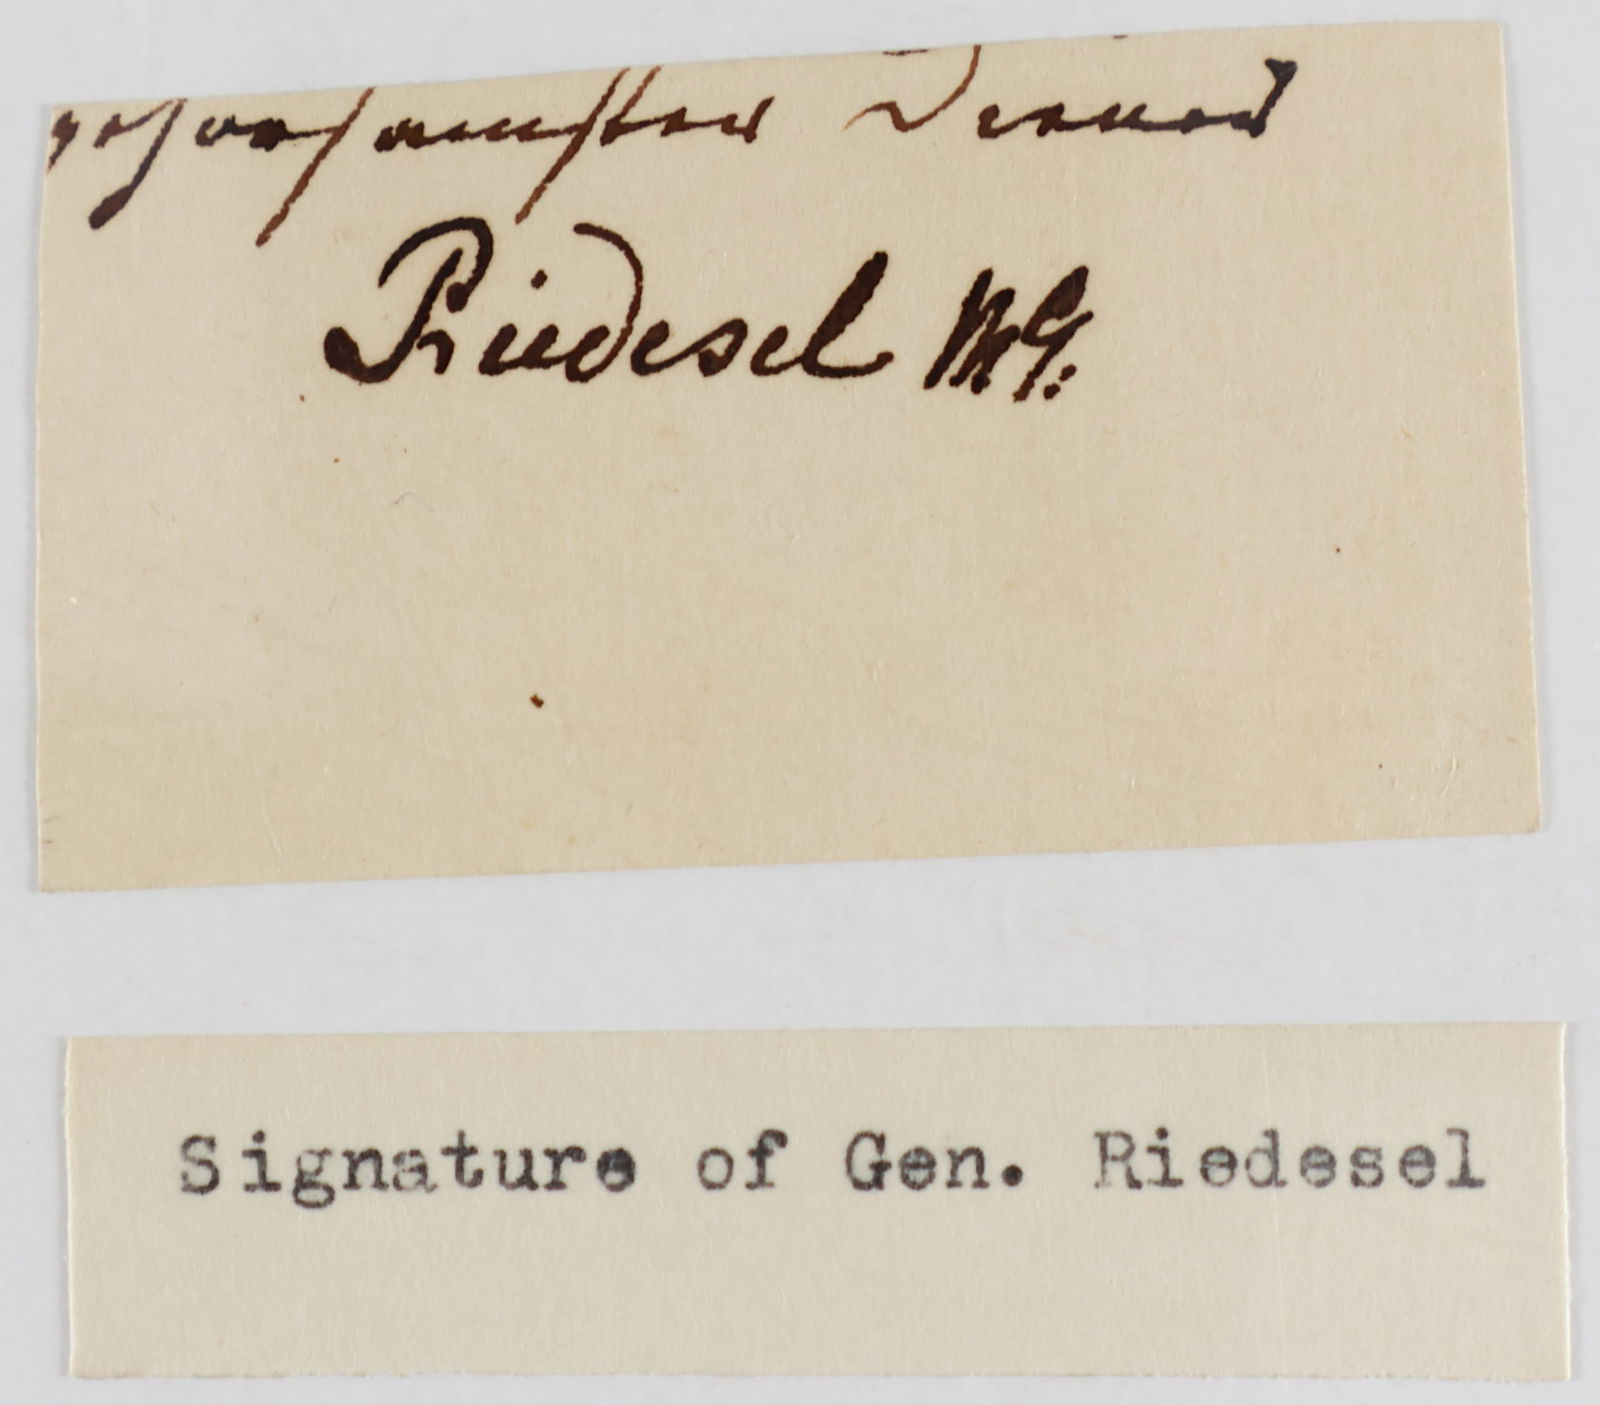 gehorsamster Diener
Riedesel MG:
Signature of Gen. Riedesel